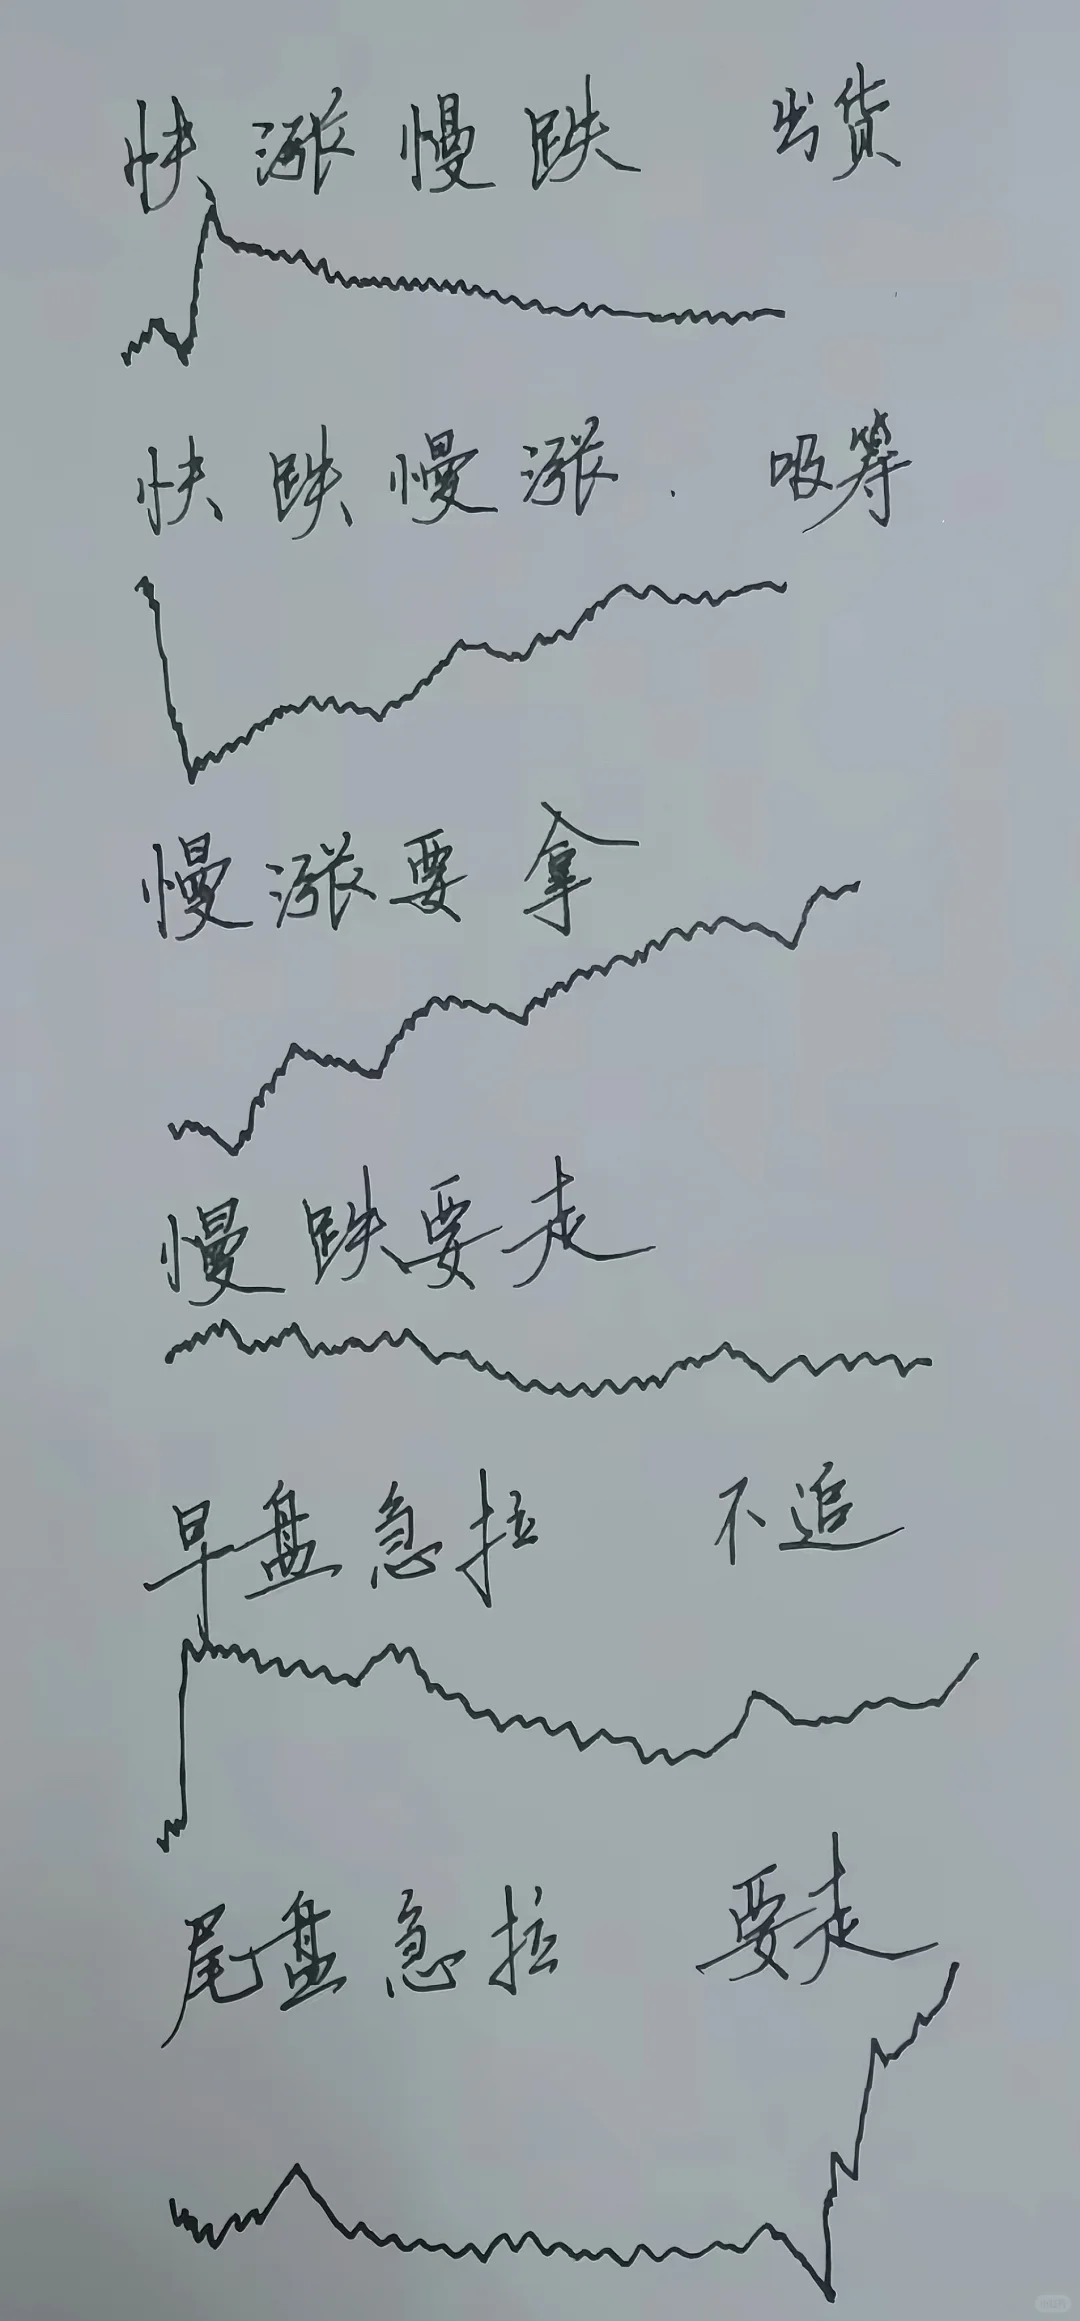 快涨慢跌 出货
快跌慢涨. 吸筹
慢涨要拿
慢跌要走
早盘急拉 不追
尾盘急拉 要走